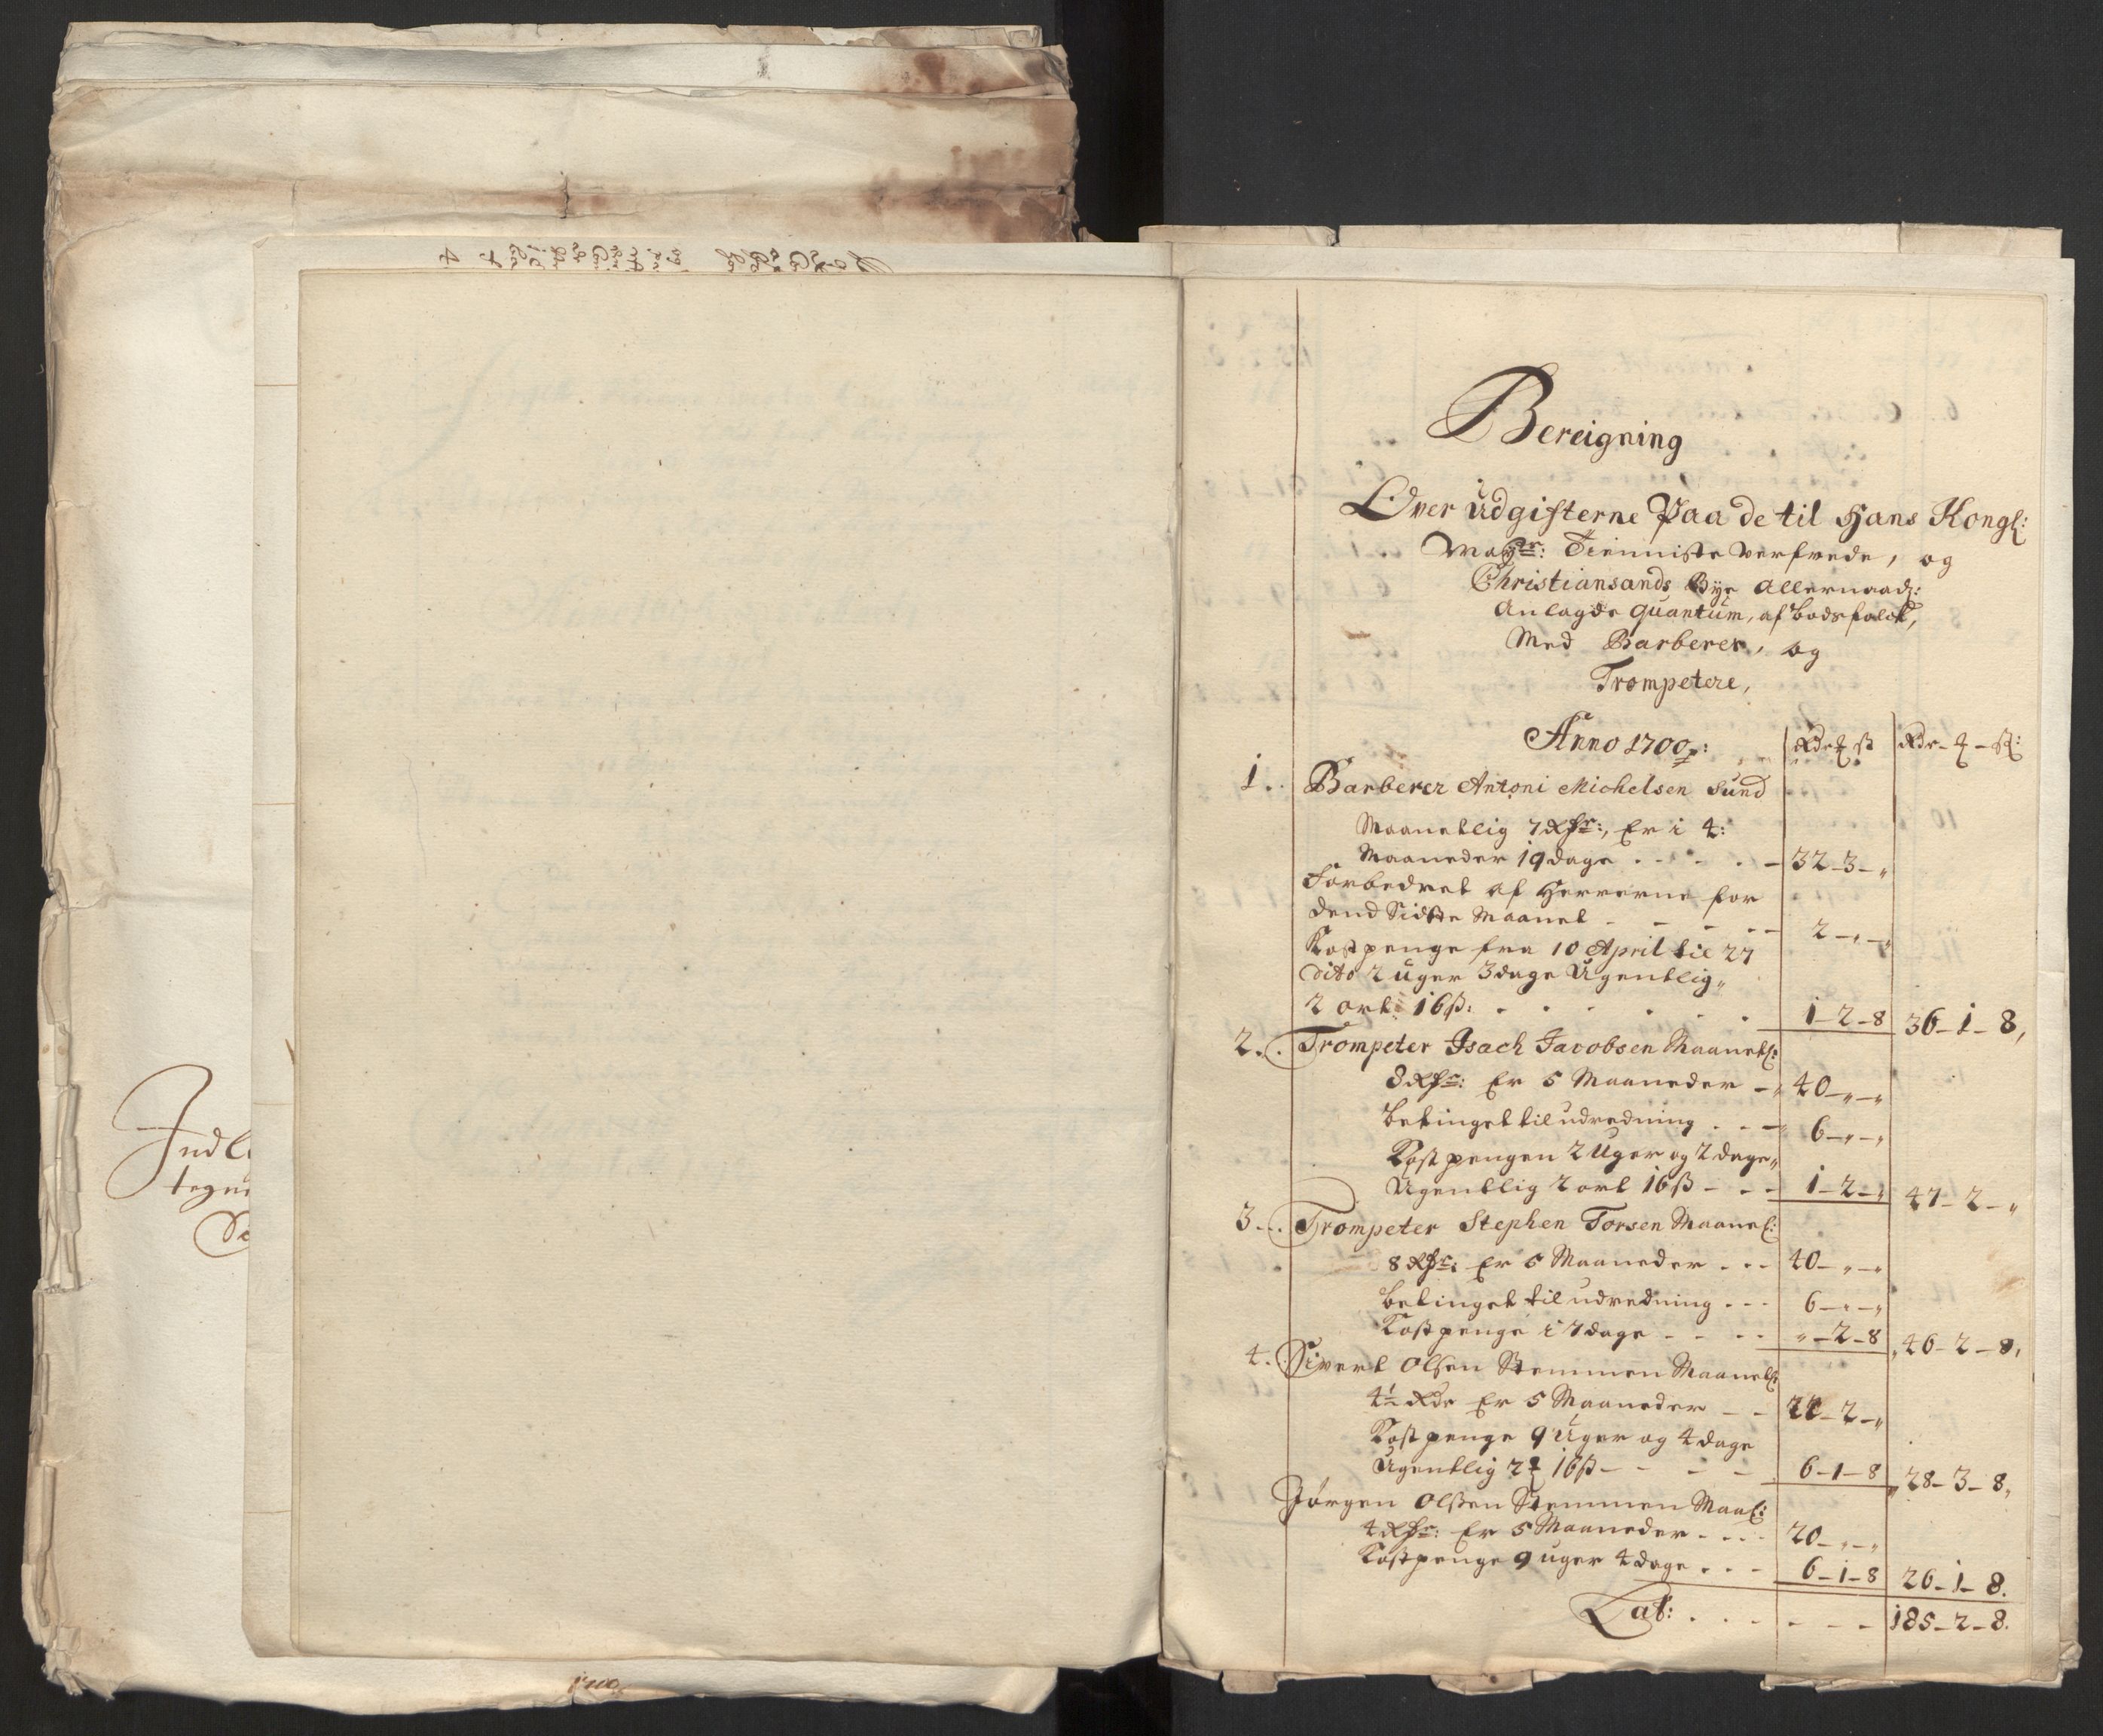 Bereigning
Over Udgifterne Paa de til Hans Kongl:
Mayts: Tienniste Verfvede, og
Christiansands Bye Allernaad:
Anlagde Quantum, af Bodsfolck,
Med Barberer, og
Trompetere,
Anno 1700: Rdr ß Rdr ß:
1. Barberer Antoni Michelsen Sund
Maanetlig 7 Rdr:, Er i 4:
Maaneder 19 dage - - - 32-3-"
Forbedret af Herrerne for
dend Sidste Maanet - - - 2-"-"
Kostpenge fra 10 April til 27
dito 2 Uger 3 dage Ugentlig"
2 ort 16 ß: . . . . . 1-2-8 36-1-8,
2. Trompeter Isach Jacobsen Maanetl:
8 Rdr: Er 5 Maaneder - 40-"-"
betinget til udredning . . - 6-"-"
Kostpengen 2 Uger og 2 dage"
Ugentlig 2 ort 16 ß - - - 1-2-" 47-2-"
3. Trompeter Stephen Torsen Maanel:
8 Rdr: Er 5 Maaneder . . - 40-"-"
betinget til udredning . . - 6-"-"
Kostpenge i 7 dage - - - - "-2-8 46-2-8,
4. Sivert Olsen Stemmen Maanetl:
4½ Rdr Er 5 Maaneder - - 22-2-"
Kostpenge 9 Uger og 4 dage
Ugentlig 2 16 ß - - - - 6-1-8 28-3-8,
Jörgen Olssen Stemmen Maal:
4 Rdr: Er 5 Maaneder - . . . 20-"-"
Kostpenge 9 uger 4 dage . . - 6-1-8 26-1-8.
Lat: . . . - - - 185-2-8.
1700